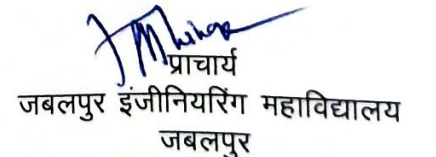 प्राचार्य
जबलपुर इंजीनियरिंग महाविद्यालय
जबलपुर